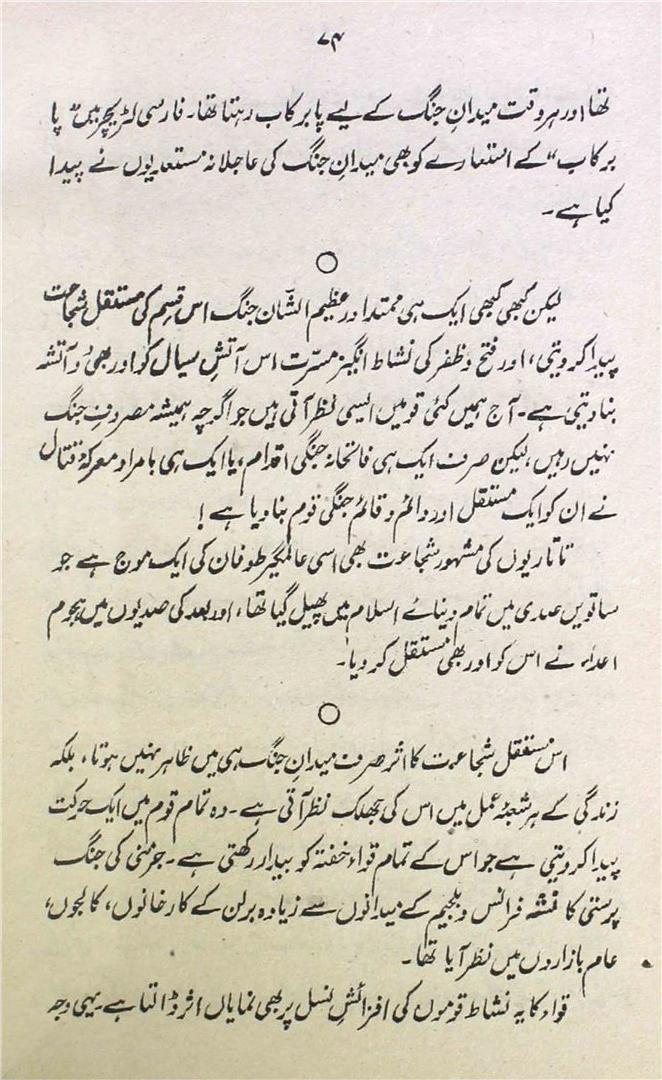 ۷۴
تھا اور ہر وقت میدانِ جنگ کے لیے پا بر کاب رہتا تھا۔ فارسی لٹریچر میں ”پا
بر کاب“ کے استعارے کو بھی میدانِ جنگ کی عاجلانہ مستعدیوں نے پیدا
کیا ہے۔
لیکن کبھی کبھی ایک ہی ممتد اور عظیم الشّان جنگ اس قسم کی مستقل شجاعت
پیدا کر دیتی، اور فتح و ظفر کی نشاط انگیز مسرّت اس آتشِ سیال کو اور بھی دو آتشہ
بنا دیتی ہے۔ آج ہمیں کئی قومیں ایسی نظر آتی ہیں جو اگرچہ ہمیشہ مصروفِ جنگ
نہیں رہیں، لیکن صرف ایک ہی فاتحانہ جنگی اقدام، یا ایک ہی بامراد معرکۂ قتال
نے ان کو ایک مستقل اور دائم و قائم جنگی قوم بنا دیا ہے!
تاتاریوں کی مشہور شجاعت بھی اسی عالمگیر طوفان کی ایک موج ہے جو
ساتویں صدی میں تمام دنیائے اسلام میں پھیل گیا تھا، اور بعد کی صدیوں میں ہجوم
اعداء نے اس کو اور بھی مستقل کر دیا۔
اس مستقل شجاعت کا اثر صرف میدانِ جنگ ہی میں ظاہر نہیں ہوتا، بلکہ
زندگی کے ہر شعبۂ عمل میں اس کی جھلک نظر آتی ہے۔ وہ تمام قوم میں ایک حرکت
پیدا کر دیتی ہے جو اس کے تمام قواء خفتہ کو بیدار رکھتی ہے۔ جرمنی کی جنگ
پرستی کا نشہ فرانس و بلجیم کے میدانوں سے زیادہ برلن کے کارخانوں، کالجوں،
عام بازاروں میں نظر آیا تھا۔
قواء کا یہ نشاط قوموں کی افزائشِ نسل پر بھی نمایاں اثر ڈالتا ہے۔ یہی وجہ